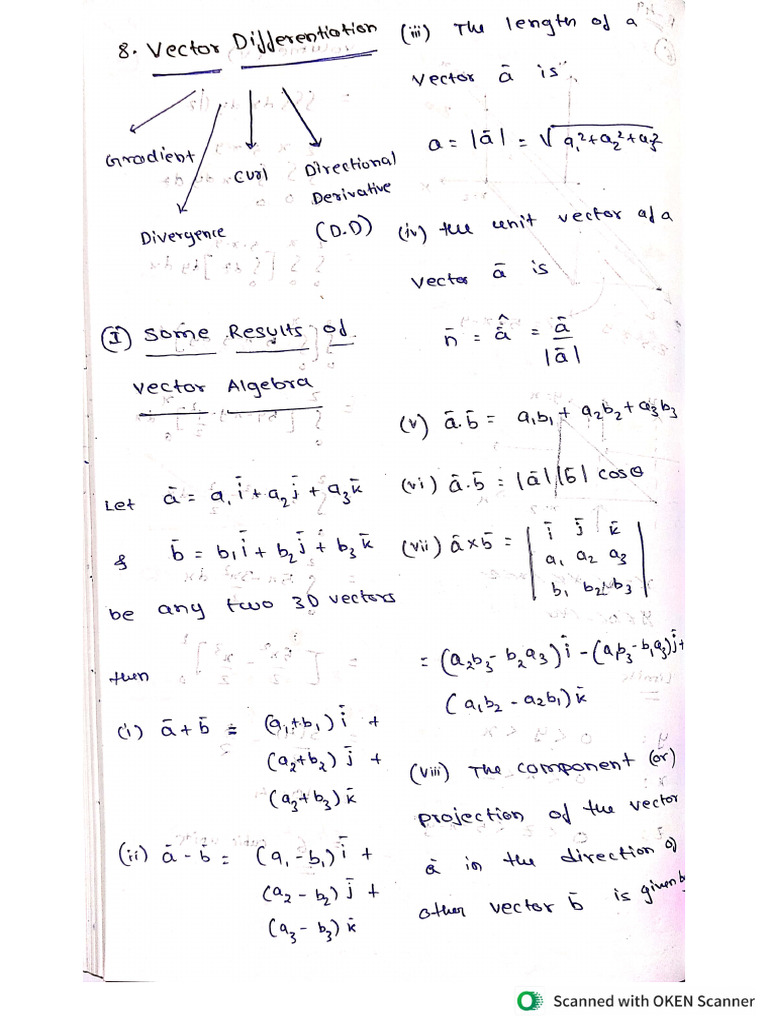 8. Vector Differentiation
Gradient
Divergence
Curl
Directional
Derivative
(D.D)
(I) Some Results of
Vector Algebra
Let ā = a₁ī + a₂j̄ + a₃k̄
& b̄ = b₁ī + b₂j̄ + b₃k̄
be any two 3D vectors
then
(i) ā + b̄ = (a₁+b₁)ī +
(a₂+b₂)j̄ +
(a₃+b₃)k̄
(ii) ā - b̄ = (a₁-b₁)ī +
(a₂-b₂)j̄ +
(a₃-b₃)k̄
(iii) The length of a
vector ā is
a = |ā| = √a₁²+a₂²+a₃²
(iv) the unit vector of a
vector ā is
n̄ = â = ā/|ā|
(v) ā.b̄ = a₁b₁ + a₂b₂ + a₃b₃
(vi) ā.b̄ = |ā||b̄| cosθ
(vii) ā×b̄ = | ī j̄ k̄ |
| a₁ a₂ a₃ |
| b₁ b₂ b₃ |
= (a₂b₃ - b₂a₃)ī - (a₁b₃ - b₁a₃)j̄ +
(a₁b₂ - a₂b₁)k̄
(viii) The component (or)
projection of the vector
ā in the direction of
other vector b̄ is given by
Scanned with OKEN Scanner